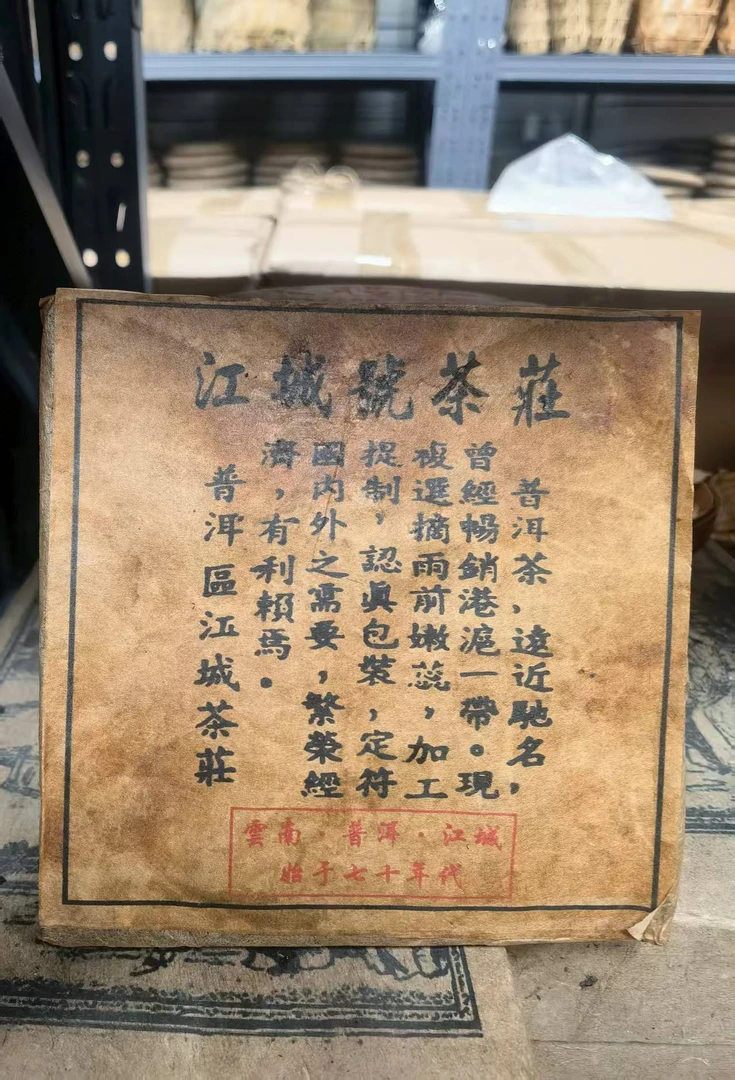 江城號茶莊
普洱茶，遠近馳名，
曾經暢銷港滬一帶。現
複選摘雨前嫩蕊，加工
提制，認眞包裝，定符
國内外之需要，繁榮經
濟，有利賴馬。
普洱區江城茶莊
雲南·普洱·江城
始于七十年代